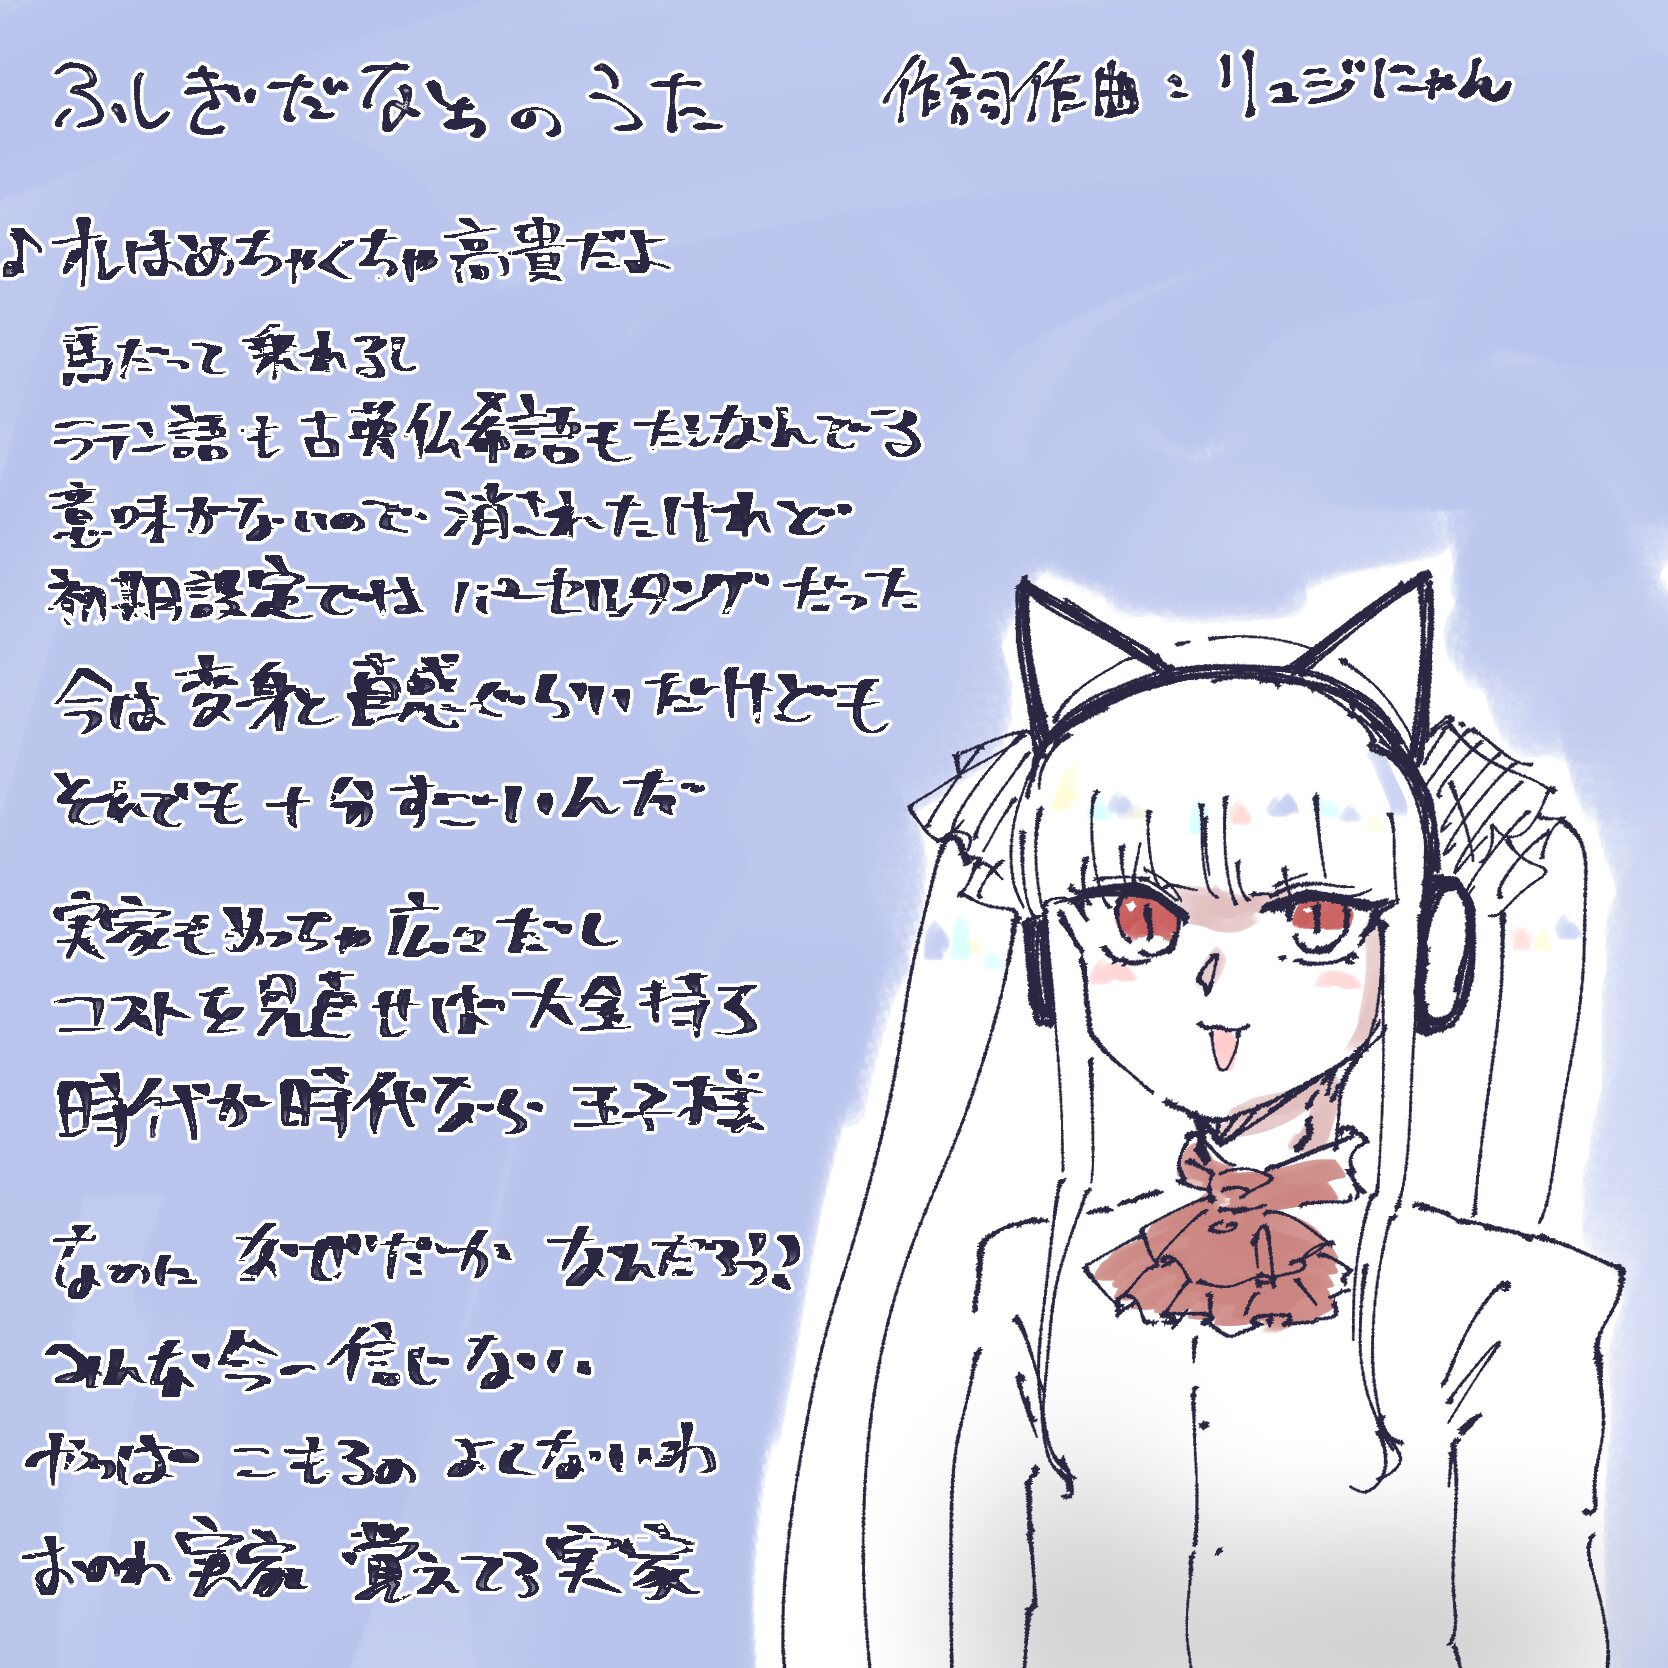 ふしぎだなぁのうた
作詞作曲:リュジにゃん
♪オレはめちゃくちゃ高貴だよ
馬だって乗れるし
ラテン語も古英仏希語もたしなんでる
意味がないので消されたけれど
初期設定ではパーセルタングだった
今は変身と直感ぐらいだけども
それでも十分すごいんだ
実家もめっちゃ広々だし
コストを見直せば大金持ち
時代が時代なら王子様
なのになぜだかなんだろう?
みんな今一信じない
やっぱーこもるのよくないわ
おのれ実家 覚えてろ実家